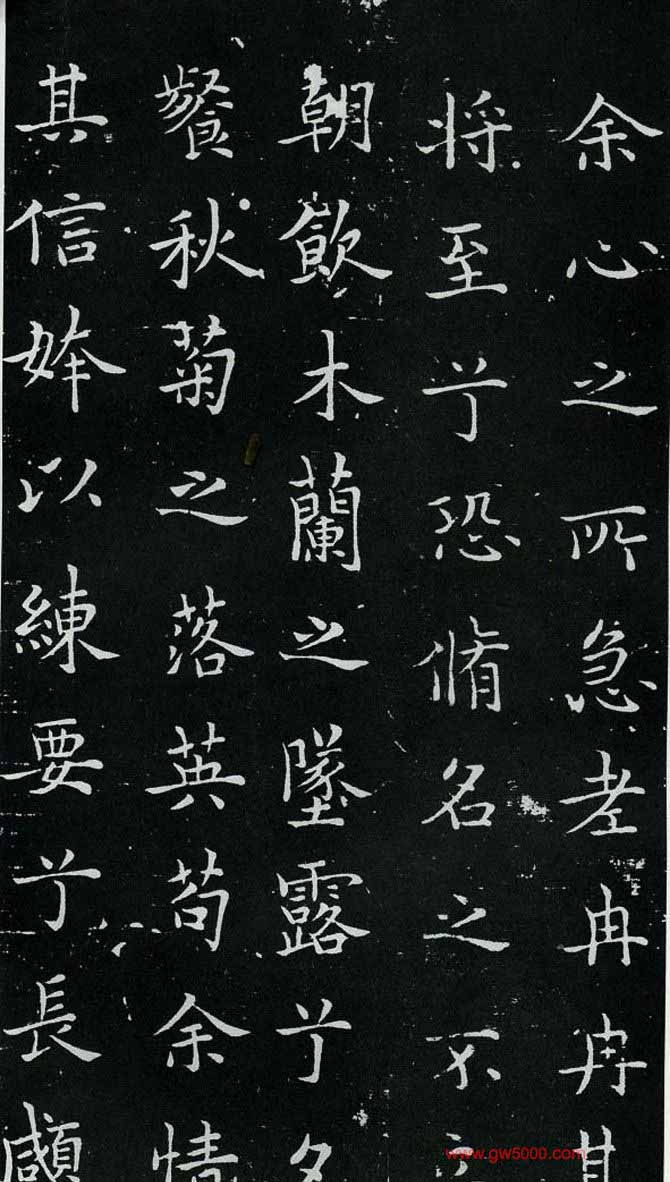 余心之所急老冉冉其
将至兮恐脩名之不立
朝飲木蘭之墜露兮夕
餐秋菊之落英苟余情
其信姱以練要兮長顑
www.gw5000.com